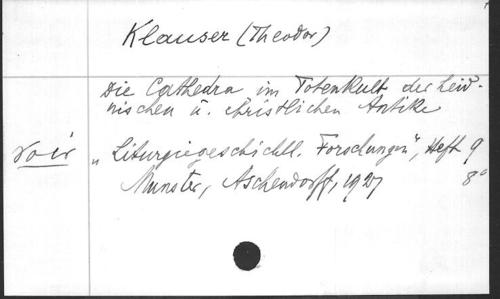 Klauser (Theodor)
Die Cathedra im Totenkult der heid-
nischen u. christlichen Antike
voir „Liturgiegeschichtl. Forschungen", Heft 9
Münster, Aschendorff, 1927 8°